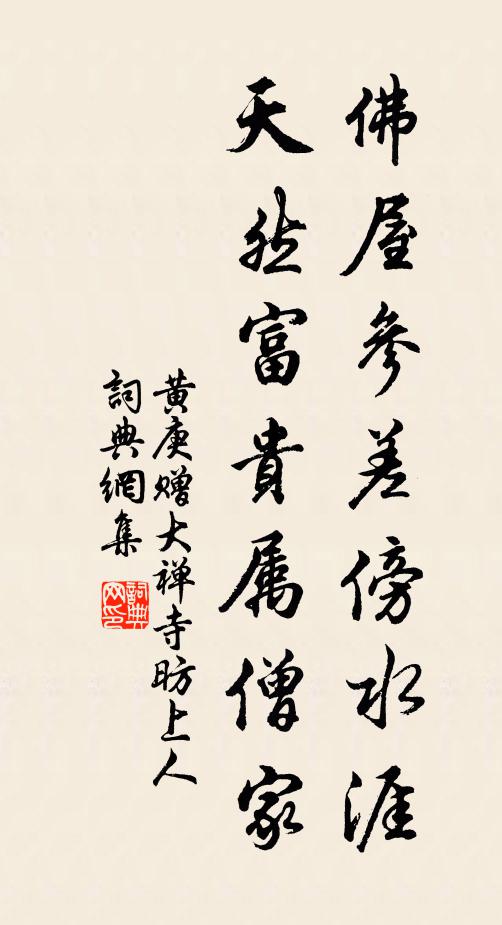 佛屋參差傍水涯
天然富貴属僧家
黄庚赠大禅寺昉上人
詞典網集
詞典網印